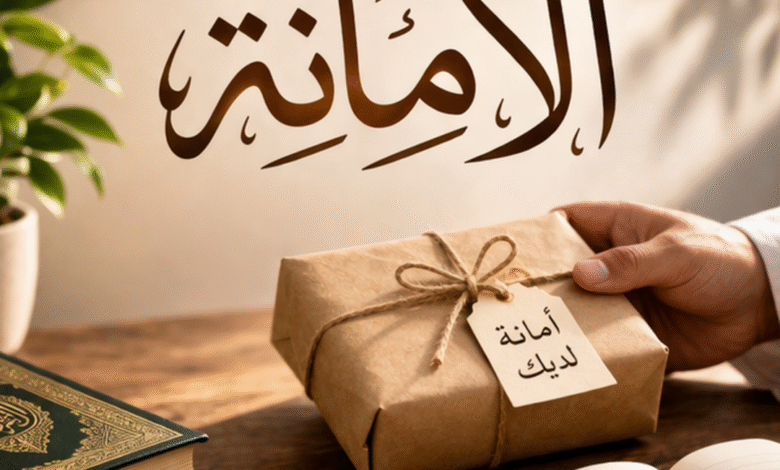 الأمانة
أمانة
لديك